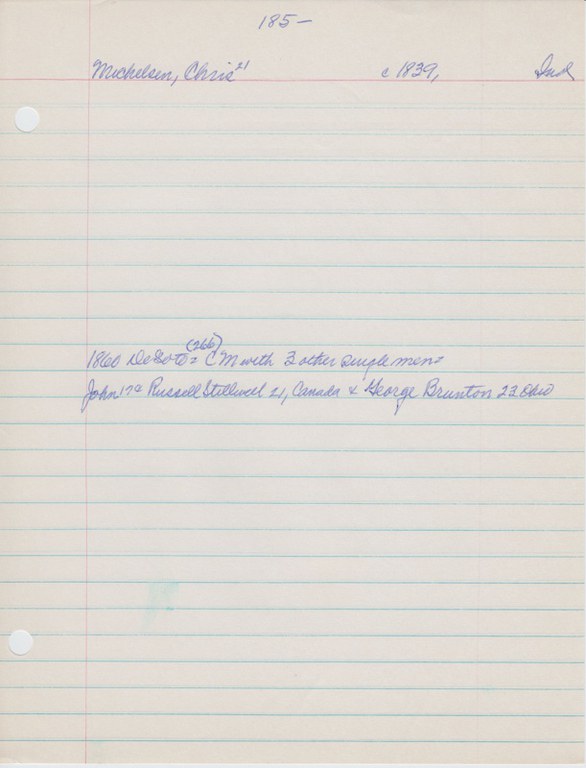 185-
Michelsen, Chris 21 c 1839, Ind
(266)
1860 DeSoto = CM with 3 other single men =
John 17 & Russell Stillwell 21, Canada & George Brunton 23 Ohio